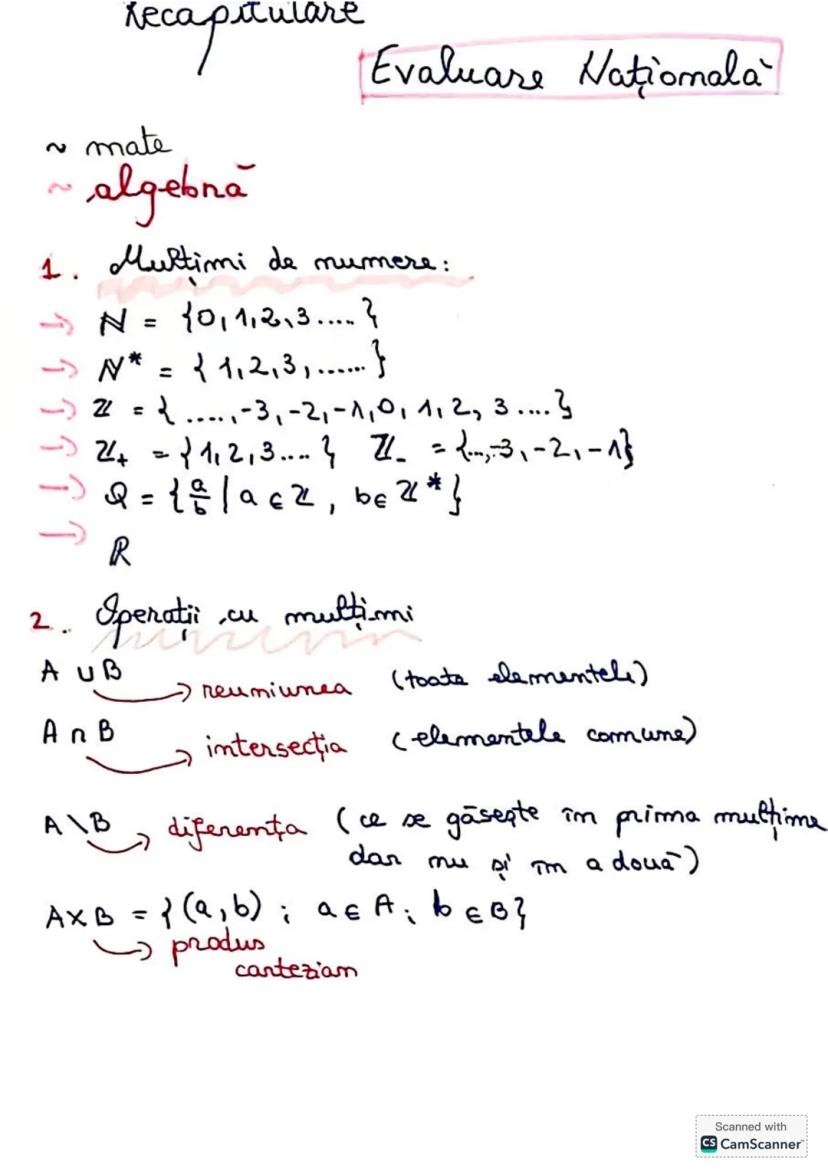 Recapitulare
Evaluare Națională
~ mate
~ algebră
1. Mulțimi de numere:
→ N = {0,1,2,3.....}
→ N* = {1,2,3,......}
→ Z = {....,-3,-2,-1,0,1,2,3....}
→ Z₊ = {1,2,3....} Z₋ = {...,-3,-2,-1}
→ Q = {a/b | a ∈ Z, b ∈ Z*}
→ R
2. Operații cu mulțimi
A ∪ B
→ reuniunea (toate elementele)
A ∩ B
→ intersecția (elementele comune)
A \ B → diferența (ce se găsește în prima mulțime
dar nu și în a două)
A×B = {(a,b) ; a ∈ A; b ∈ B}
→ produs
cartezian
Scanned with
CS CamScanner